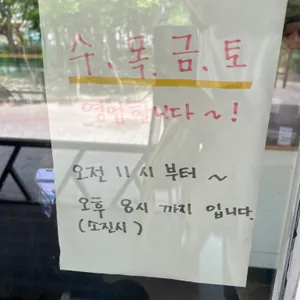 수.목.금.토
영업합니다~!
오전 11시 부터 ~
오후 8시 까지 입니다.
(소진시)